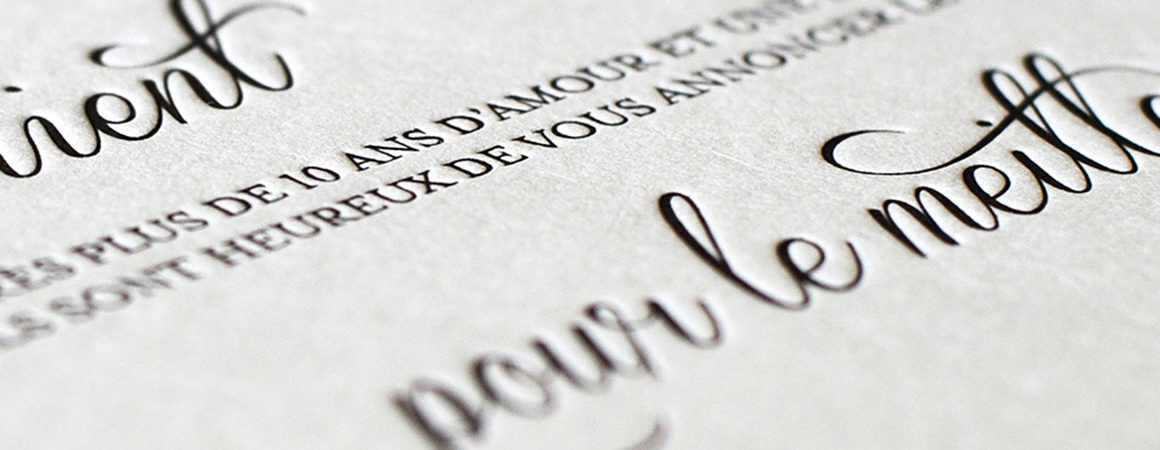 ient
RÈS PLUS DE 10 ANS D'AMOUR ET UNE
LS SONT HEUREUX DE VOUS ANNONCER LE
pour le meill